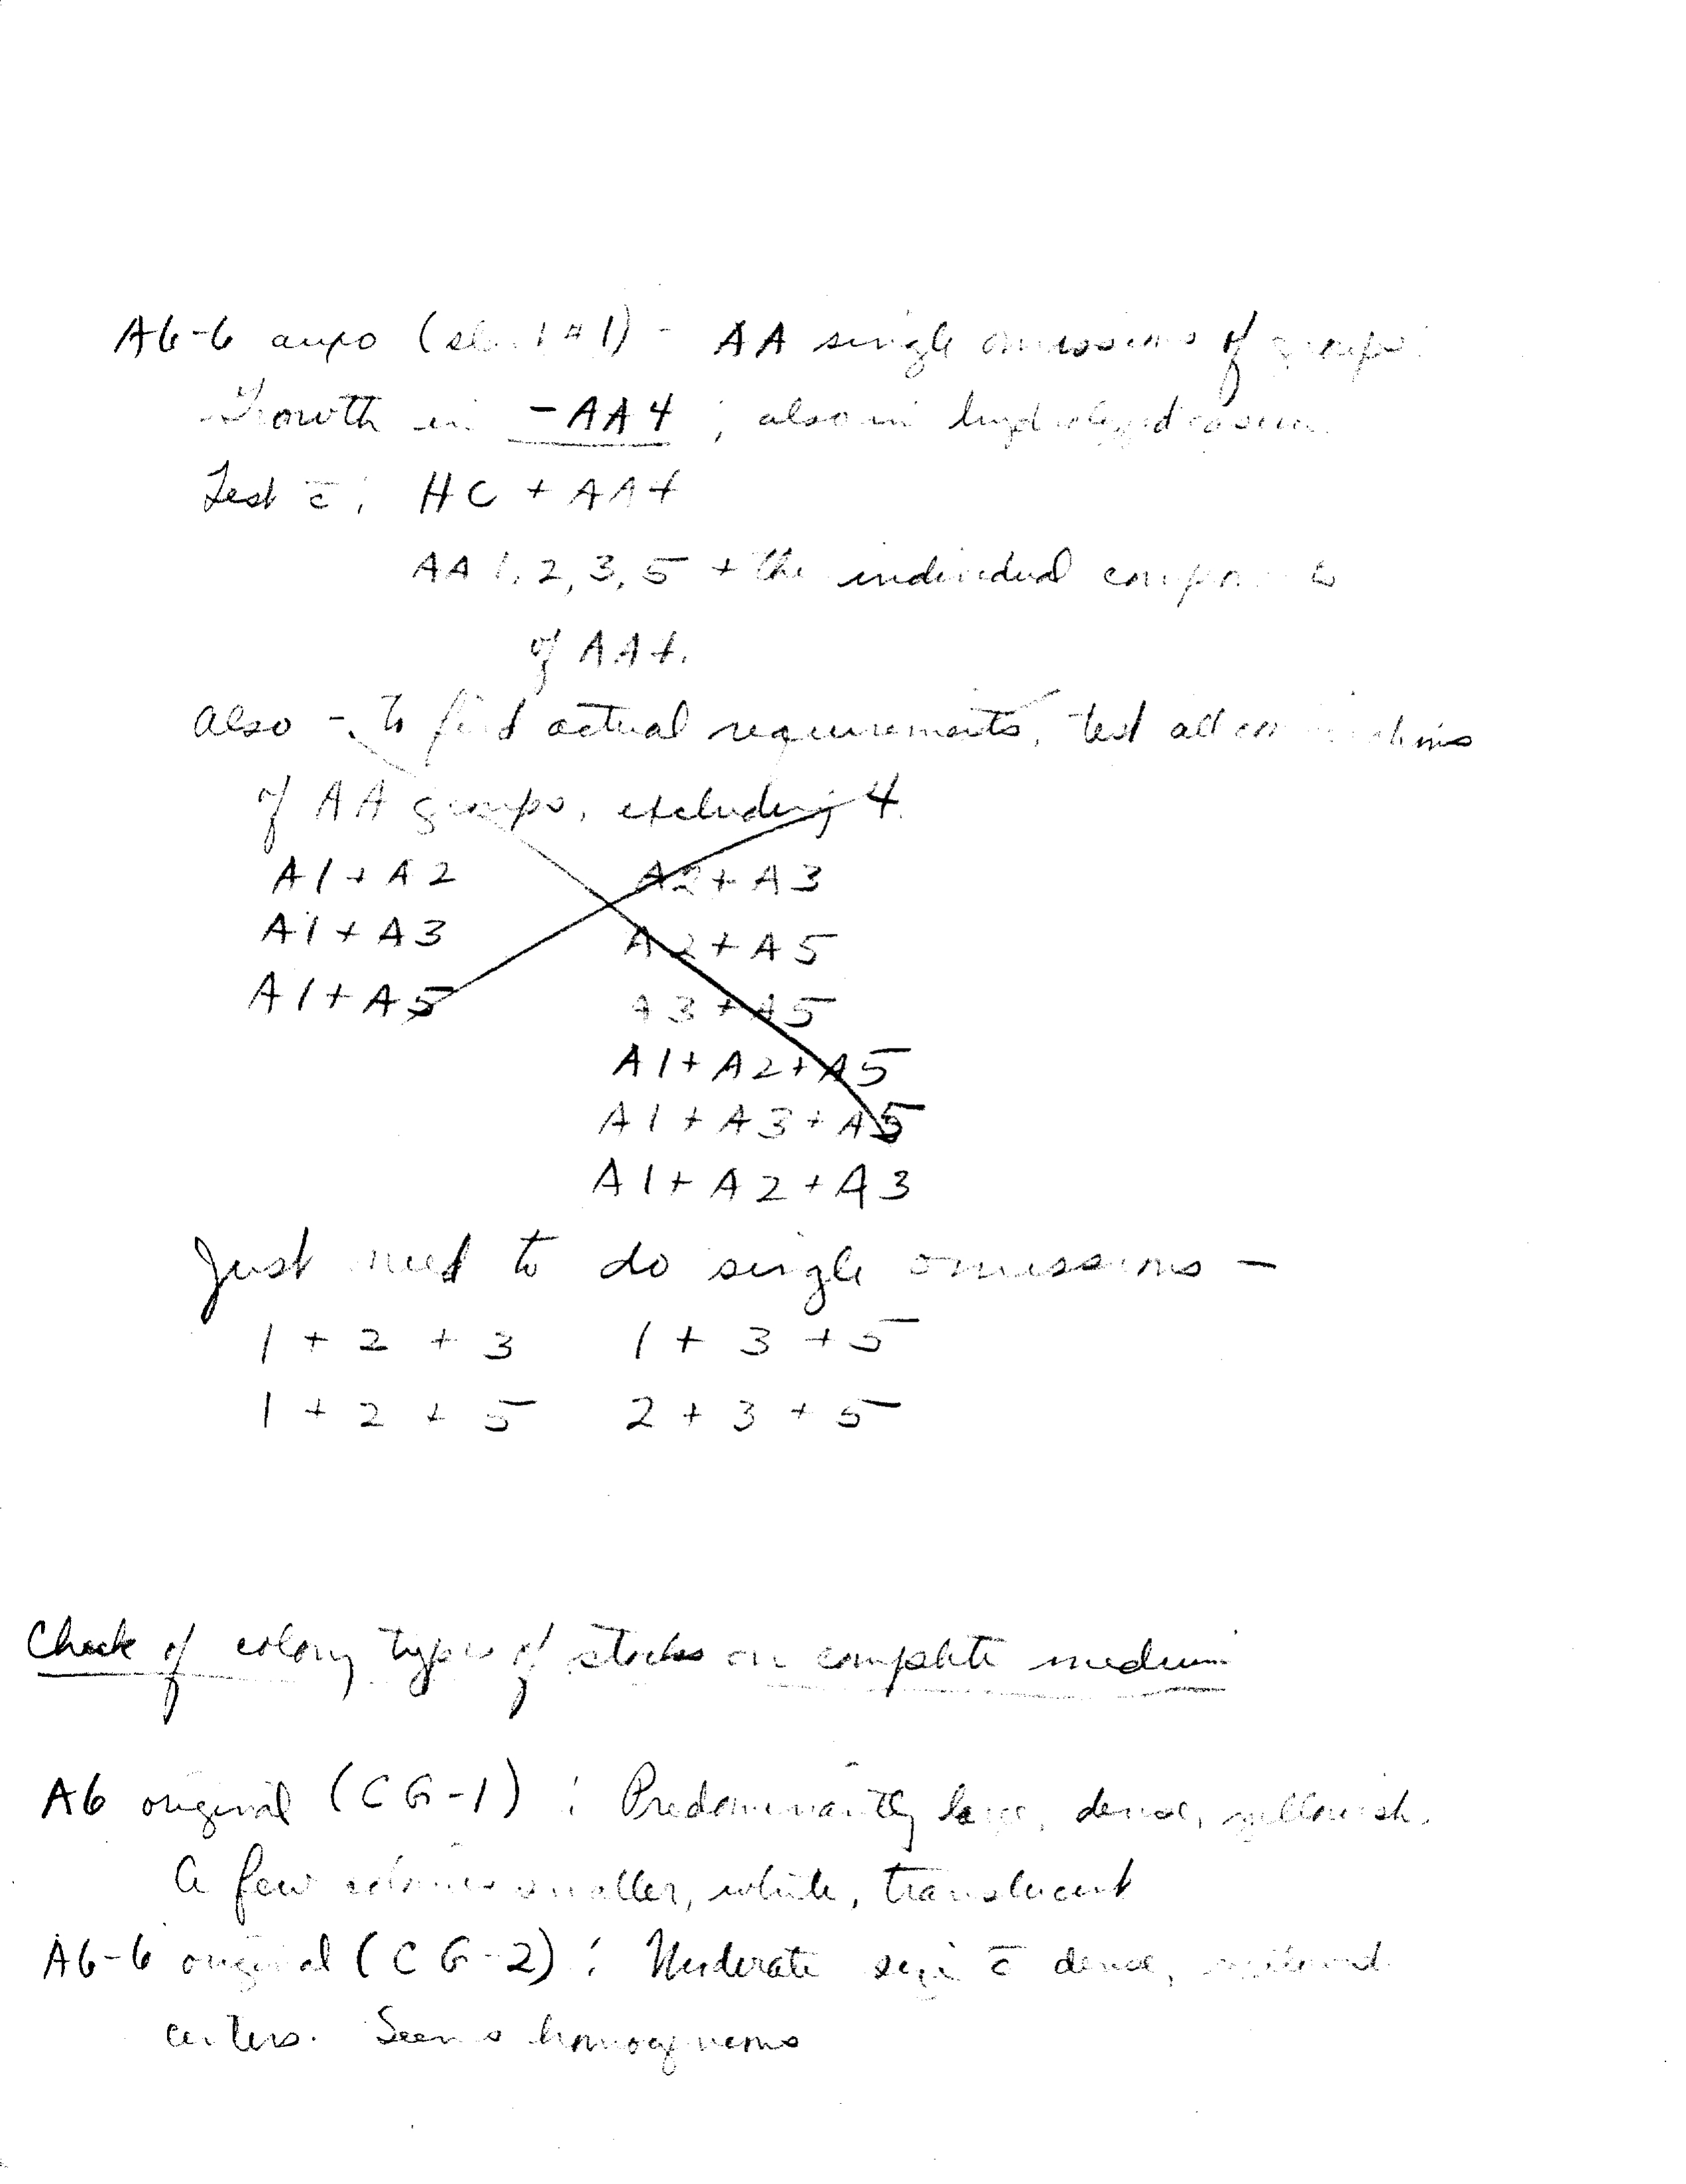 A6-6 auxo ( #1) - AA single omissions of groups.
Growth in -AA4 ; also in hydrolyzed casein.
Test c̄ : HC + AA4
AA 1, 2, 3, 5 + the individual components
of AA4.
Also - to find actual requirements, test all combinations
of AA groups, excluding 4.
A1 + A2 A2 + A3
A1 + A3 A2 + A5
A1 + A5 A3 + A5
A1 + A2 + A5
A1 + A3 + A5
A1 + A2 + A3
Just need to do single omissions -
1 + 2 + 3 1 + 3 + 5
1 + 2 + 5 2 + 3 + 5
Check of colony types of stocks on complete medium
A6 original (CG-1) : Predominantly large, dense, yellowish.
A few colonies smaller, white, translucent
A6-6 original (CG-2) : Moderate size c̄ dense,
centers. Seems homogeneous